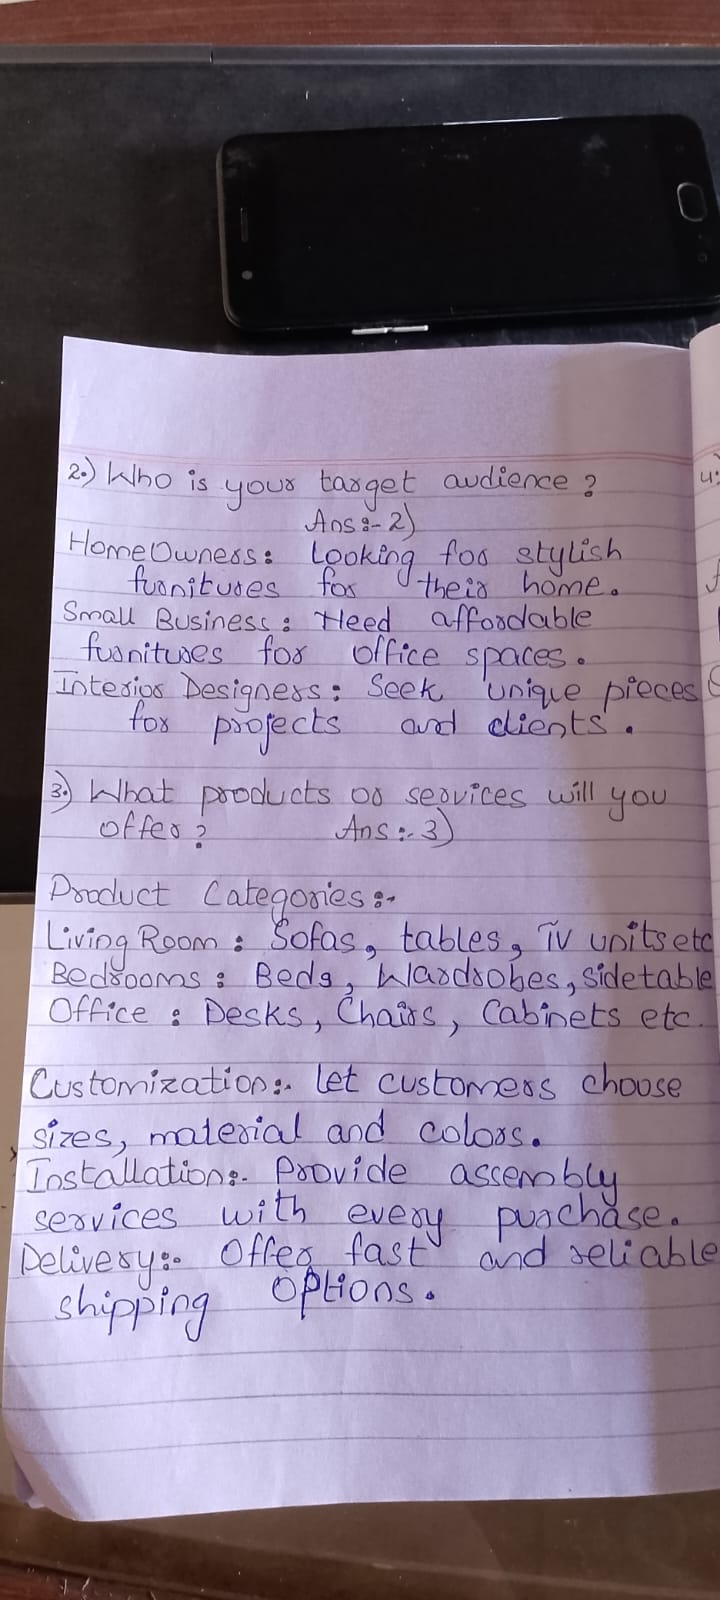 2.) Who is your target audience?
Ans:- 2)
HomeOwners: Looking for stylish
furnitures for their home.
Small Business: Need affordable
furnitures for office spaces.
Interior Designers: Seek unique pieces
for projects and clients.
3.) What products or services will you
offer? Ans:- 3)
Product Categories:-
Living Room: Sofas, tables, TV units etc
Bedrooms: Beds, Wardrobes, sidetable
Office: Desks, Chairs, Cabinets etc.
Customization:- let customers choose
sizes, material and colors.
Installation:- Provide assembly
services with every purchase.
Delivery:- Offer fast and reliable
shipping options.